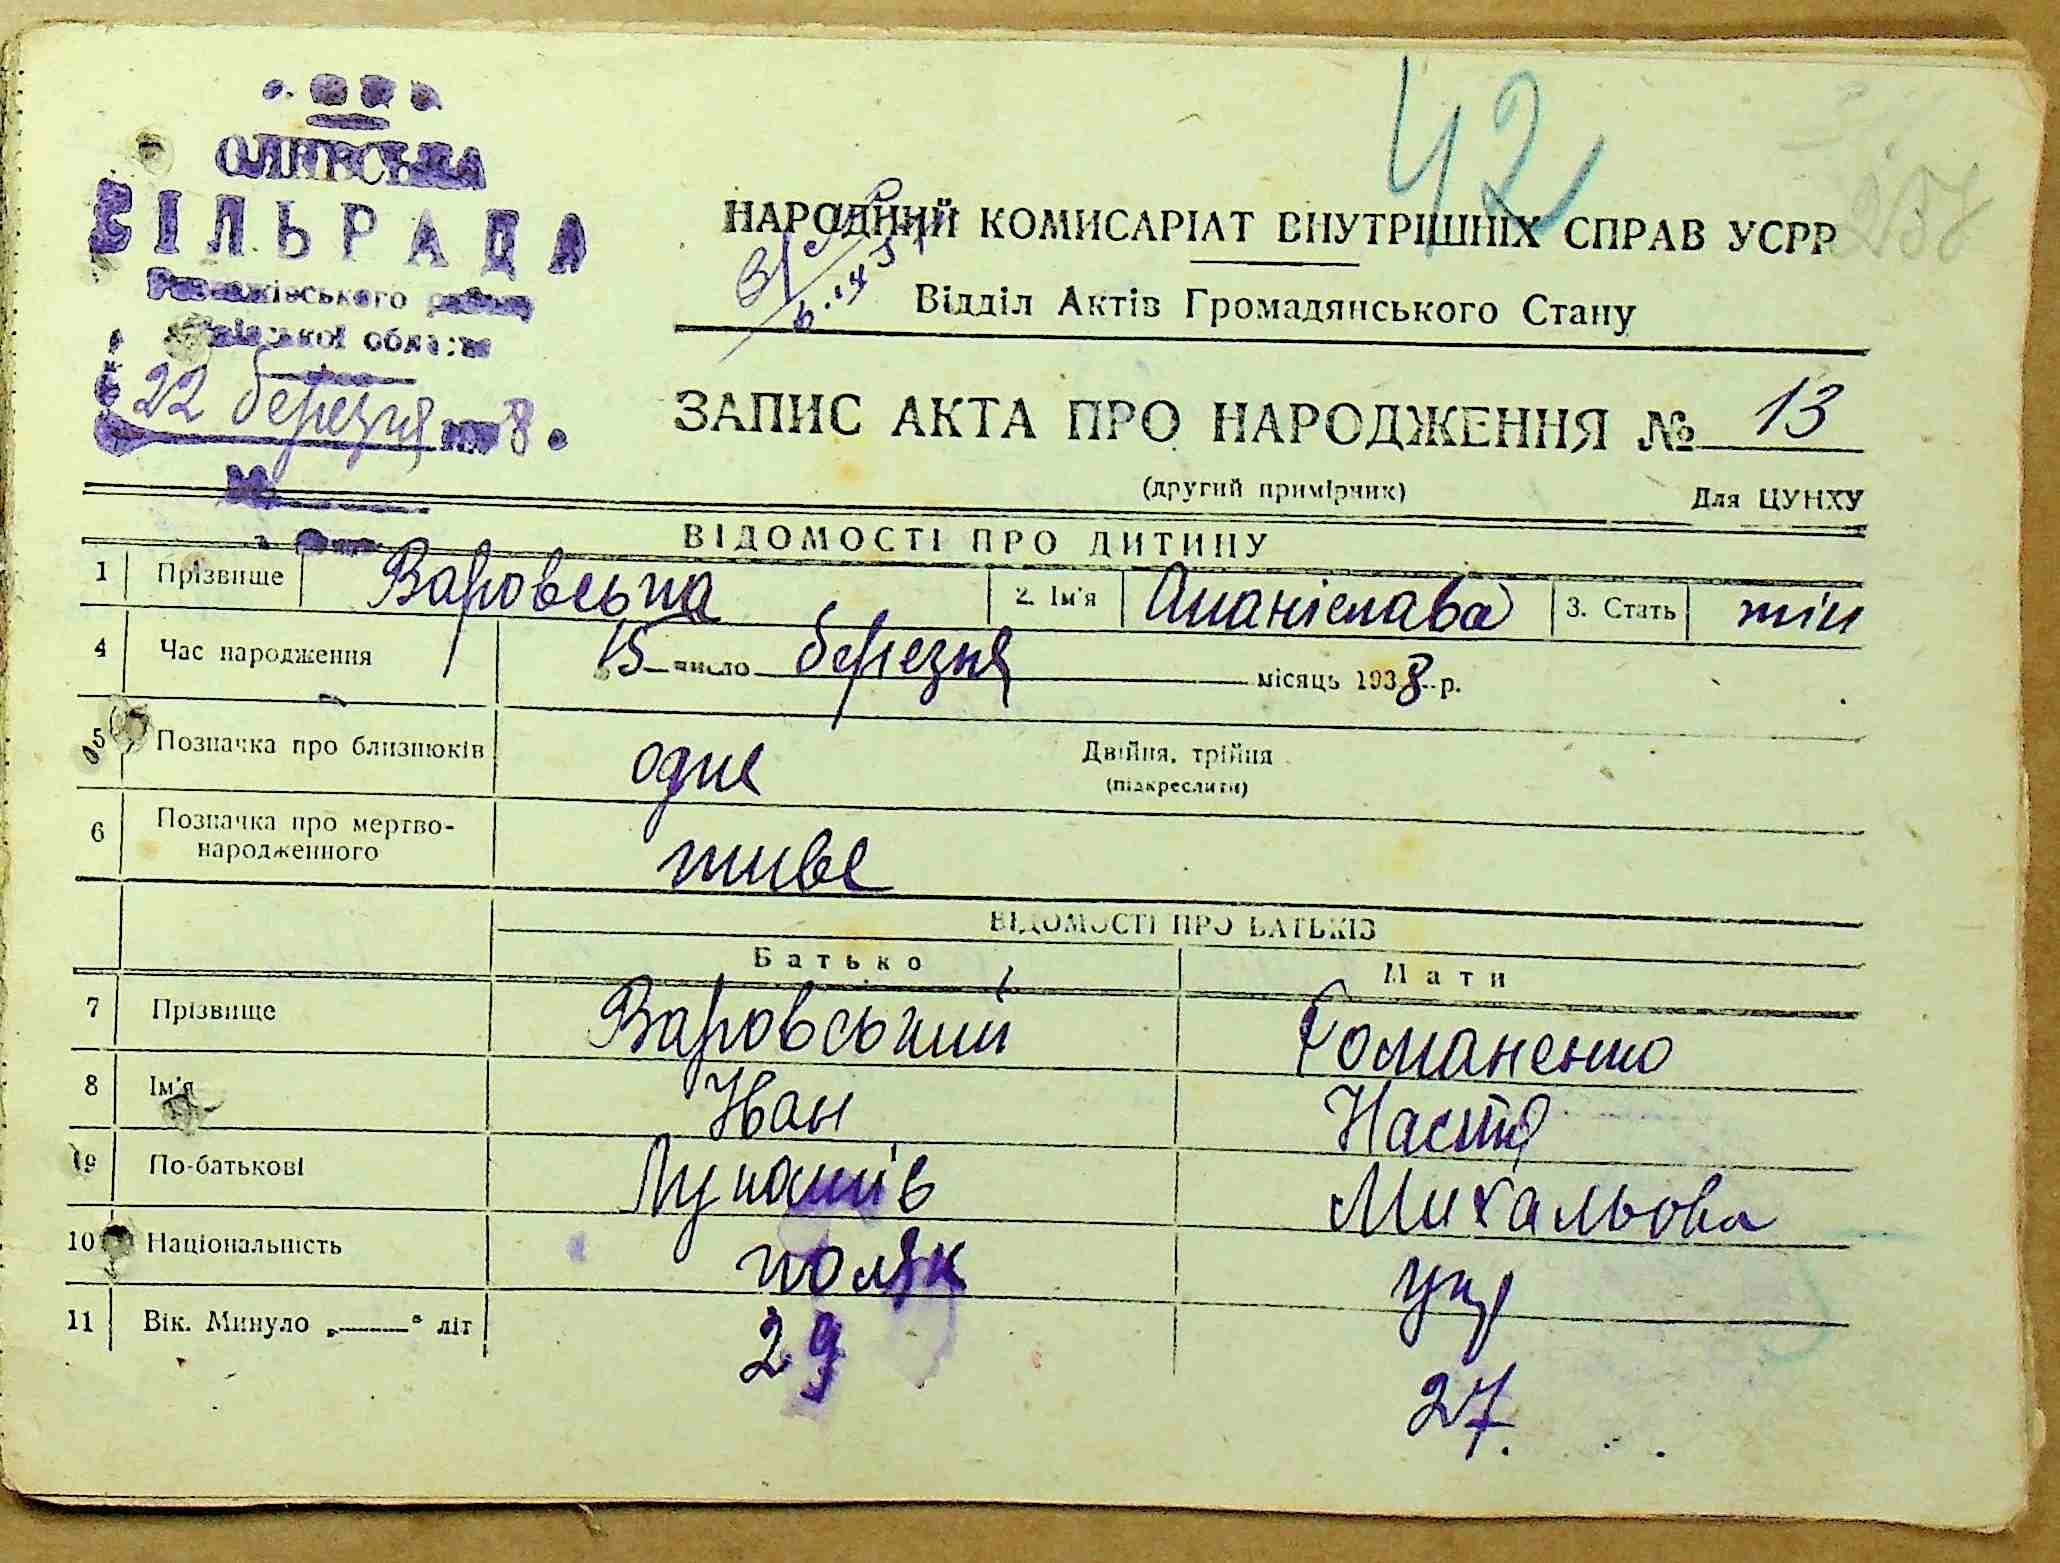 42
257
СІЛЬРАДА
області
22 березня 1938.
НАРОДНИЙ КОМИСАРІАТ ВНУТРІШНІХ СПРАВ УСРР
Відділ Актів Громадянського Стану
ЗАПИС АКТА ПРО НАРОДЖЕННЯ № 13
(другий примірник) Для ЦУНХУ
ВІДОМОСТІ ПРО ДИТИНУ
1 Прізвище Варовська 2. Ім'я 3. Стать жін
4 Час народження 15 число березня місяць 1938 р.
5 Позначка про близнюків одне Двійня, трійня
(підкреслити)
6 Позначка про мертво-
народженного живе
ВІДОМОСТІ ПРО БАТЬКІВ
Батько Мати
7 Прізвище Варовський Романенко
8 Ім'я Іван Настя
9 По-батькові Лукашів Михальова
10 Національність поляк укр
11 Вік. Минуло „——" літ 29 27.